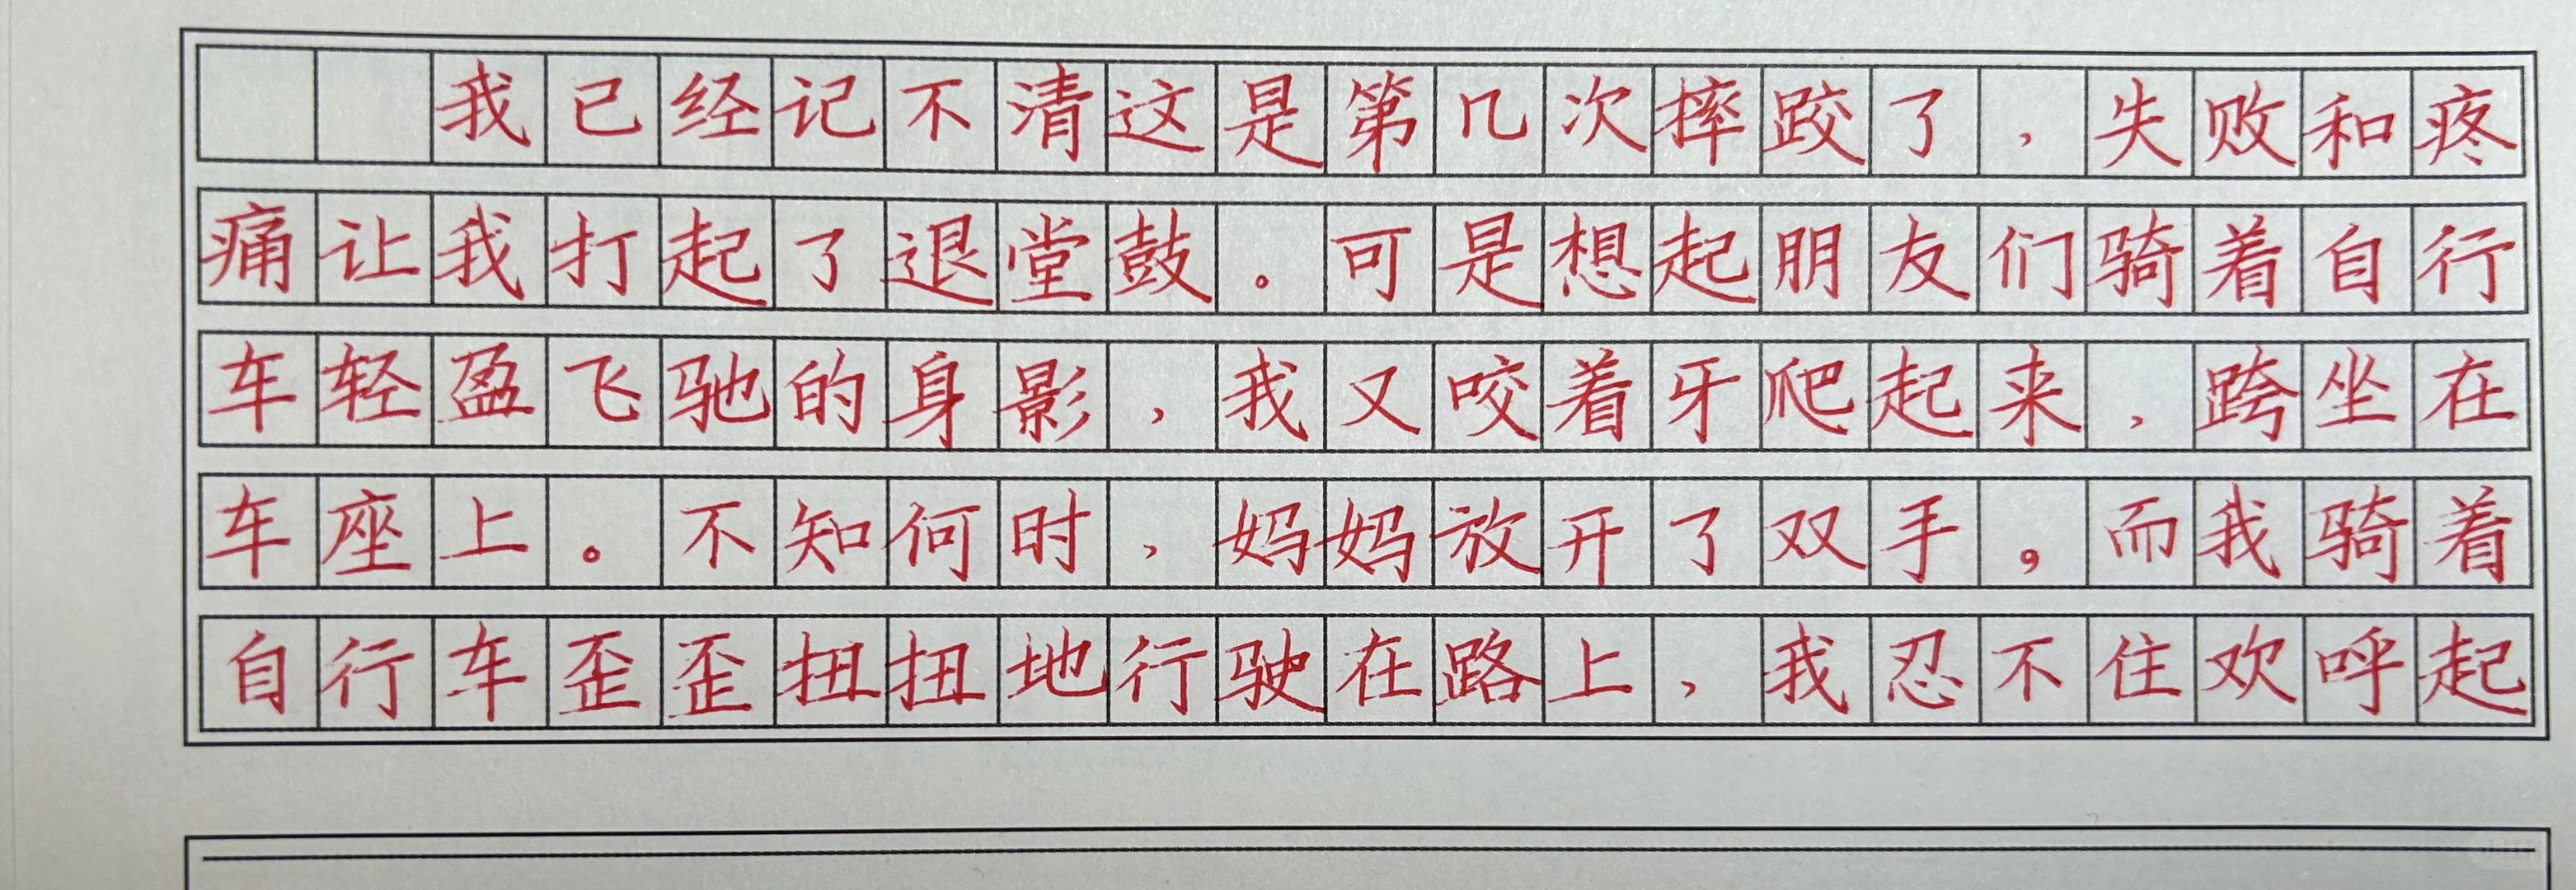 我已经记不清这是第几次摔跤了，失败和疼
痛让我打起了退堂鼓。可是想起朋友们骑着自行
车轻盈飞驰的身影，我又咬着牙爬起来，跨坐在
车座上。不知何时，妈妈放开了双手，而我骑着
自行车歪歪扭扭地行驶在路上，我忍不住欢呼起